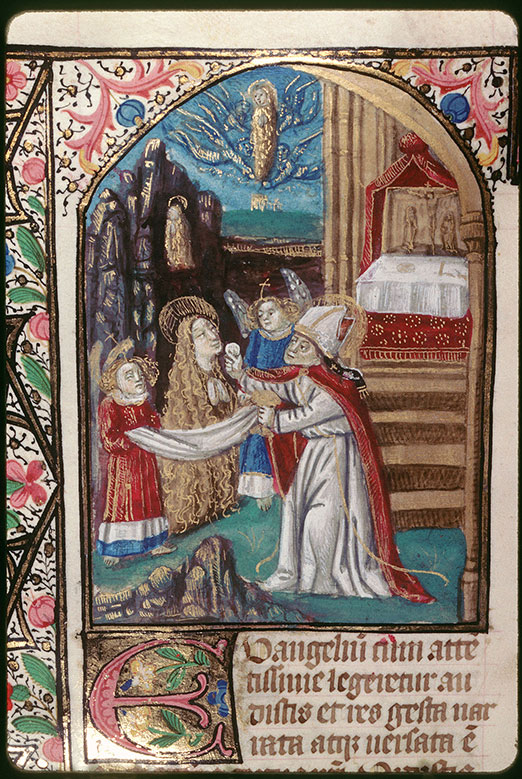 EVangeliū cum attē
tissime legeretur au
distis et res gesta nar
rata atqꝫ versata ē